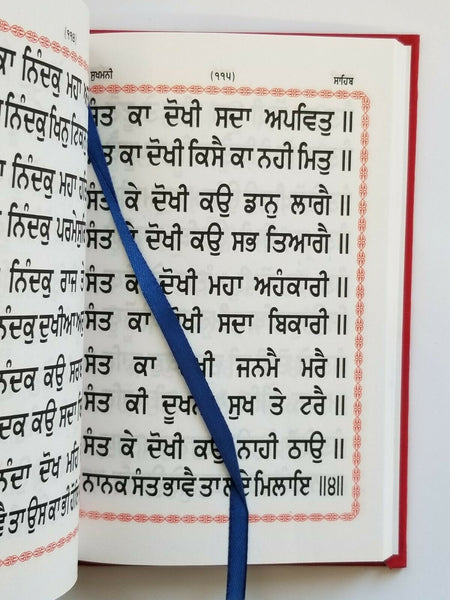 (੧੧੪)
ਨਿੰਦਕੁ ਮਹਾ
ਨਿੰਦਕੁ ਖਿਨੁ
ਨਿੰਦਕੁ ਮਹਾ
ਨਿੰਦਕੁ
ਨਿੰਦਕੁ ਰਾਜ ਤੇ
ਕਉ ਸਦਾ
ਕਉ ਸਦਾ
ਦੋਖ ਮਹਿ
ਸੁਖਮਨੀ (੧੧੫) ਸਾਹਿਬ
ਕਾ ਦੋਖੀ ਸਦਾ ਅਪਵਿਤੁ ॥
ਕਾ ਦੋਖੀ ਕਿਸੈ ਕਾ ਨਹੀ ਮਿਤੁ ॥
ਸੰਤ ਕੇ ਦੋਖੀ ਕਉ ਡਾਨੁ ਲਾਗੈ ॥
ਸੰਤ ਕੇ ਦੋਖੀ ਕਉ ਸਭ ਤਿਆਗੈ ॥
ਸੰਤ ਕਾ ਦੋਖੀ ਮਹਾ ਅਹੰਕਾਰੀ ॥
ਸੰਤ ਕਾ ਦੋਖੀ ਸਦਾ ਬਿਕਾਰੀ ॥
ਸੰਤ ਕਾ ਦੋਖੀ ਜਨਮੈ ਮਰੈ ॥
ਸੰਤ ਕੀ ਦੂਖਨਾ ਸੁਖ ਤੇ ਟਰੈ ॥
ਸੰਤ ਕੇ ਦੋਖੀ ਕਉ ਨਾਹੀ ਠਾਉ ॥
ਨਾਨਕ ਸੰਤ ਭਾਵੈ ਤਾ ਲਏ ਮਿਲਾਇ ॥੪॥